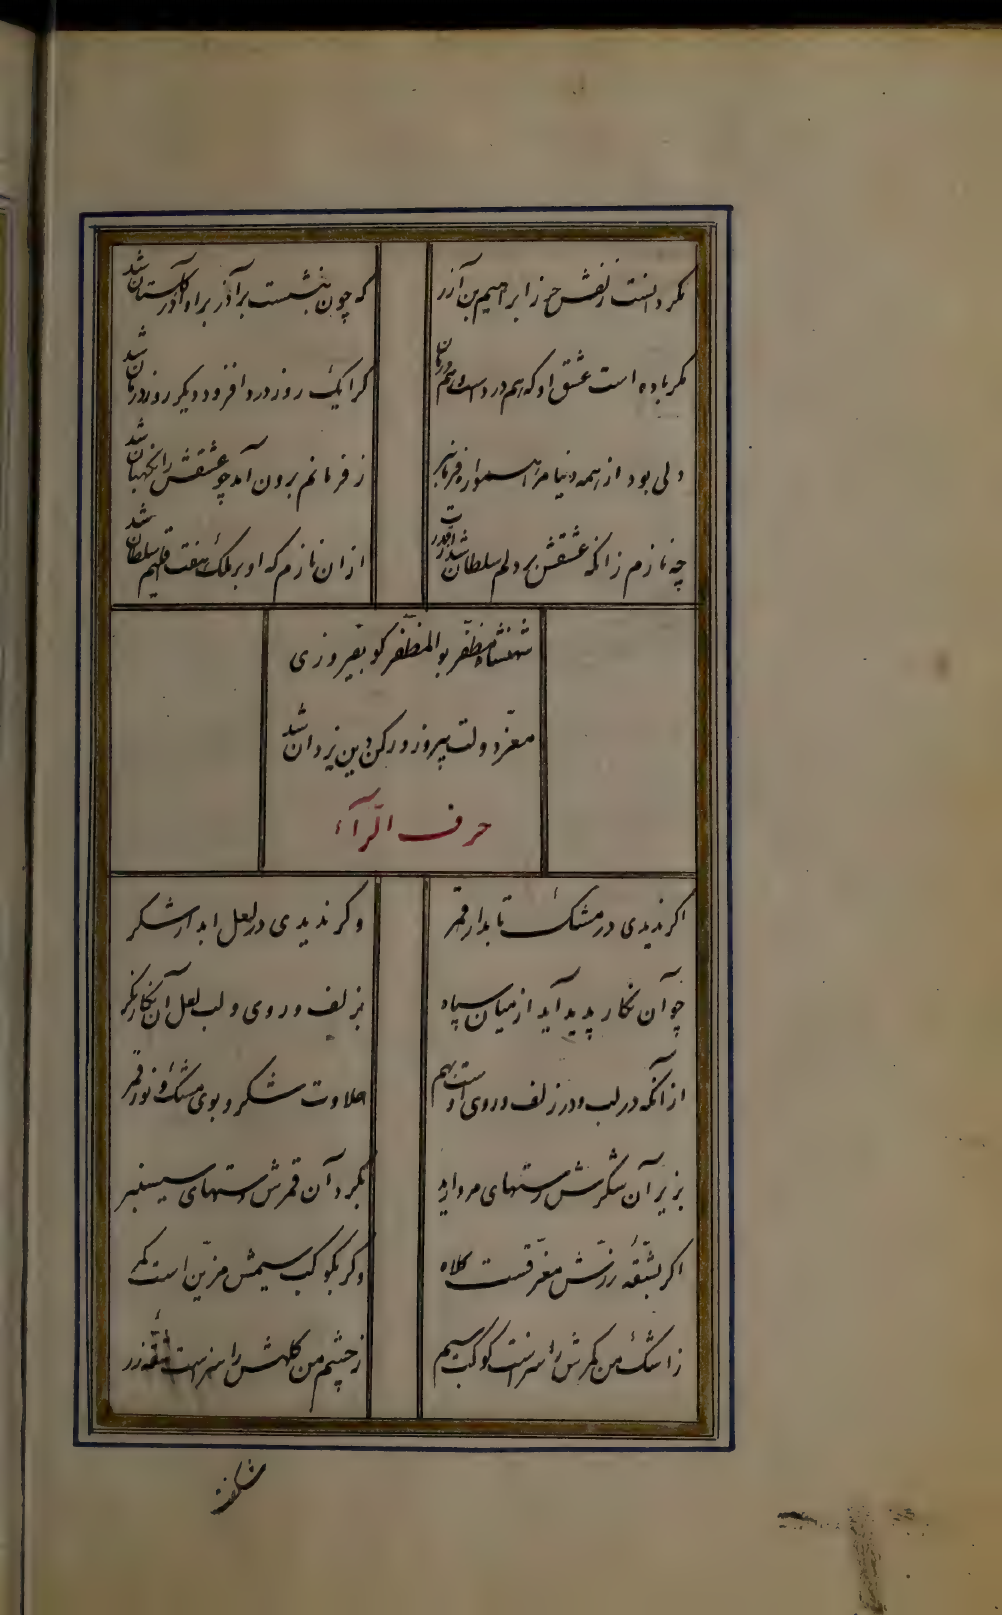 مکر دانست زلفش حرز ابراهیم بن آزر
که چون بنشست بر آذر براو آذر کلستان شد
مکر باده است عشق او که هم درد است و هم درمان
کرا یک روز درد افزود دیکر روز درمان شد
دلی بود از همه دنیا مرا همواره فرمانبر
ز فرمانم برون آمد چو عشقش را نکهبان شد
چه نازم زانکه عشقش بر دلم سلطان شد
از ان نازم که او بر ملک هفت اقلیم سلطان شد
شهنشاه مظفر بوالمظفر کو بفیروزی
معز دولت پیروز و رکن دین یزدان شد
حرف الرآء
اکر ندیدی در مشک تابدار قمر
وکر ندیدی در لعل ابدار شکر
چو آن نکار پدید آید از میان سپاه
بزلف و روی و لب لعل آن نکار نکر
از آنکه در لب و در زلف و روی اوست بهم
حلاوت شکر و بوی مشک و نور قمر
بزیر آن شکرش رستهای مروارید
بکرد آن قمرش رستهای سیسنبر
اکر بشقّه زرّش مغرّقست کلاه
وکر بکوکب سیمش مزیّن است کمر
ز اشک من کمرش را سزاست کوکب سیم
ز چشم من کلهش را سزاست شقّه زر
شکفت